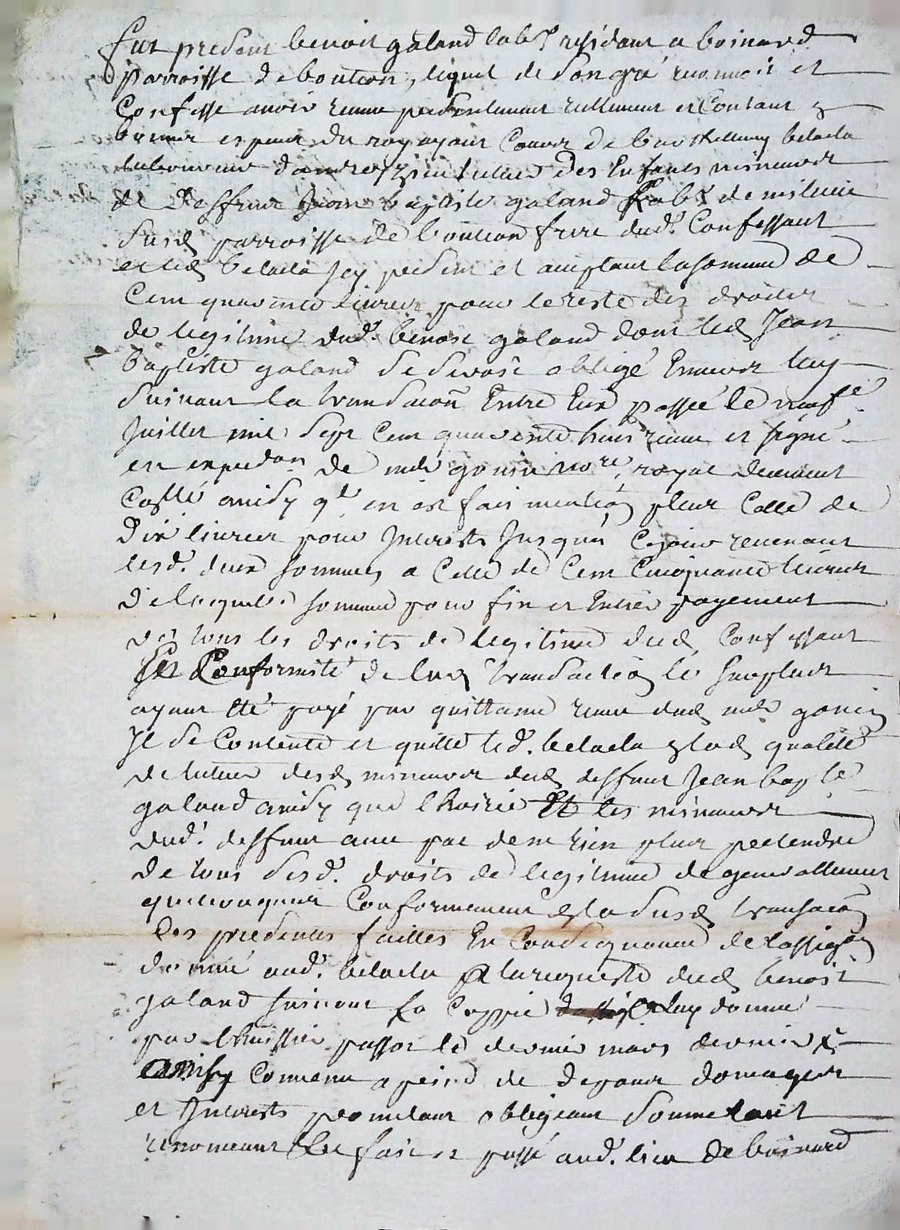 fut present benoit galand lab.r residant a boinard
parroisse de bouteon, lequel de son gré reconnoit et
Confesse avoir receu presentement reellement et Contant
especes du royaume de barthellemy belaela
tuteur des Enfants mineurs
de deffunt Jean baptiste galand lab.r de
susd parroisse de bouteon frere dud.t Confessant
et led belaela Jcy present et acceptant la somme de
Cent quarente livres pour le reste des droits
de legitime dud.t benoit galand dont led Jean
baptiste galand se seroit obligé Envers luy
suivant la transaction Entre Eux passée le neuf.e
Juillet mil sept Cent quarente huit receue et signé
en expedon de me gonin no.re royal deuement
Collé ainsy q.l en est fait mention plus Celle de
dix livres pour Interests Jusqua Cejour revenant
lesd.t deux sommes a Celle de Cent Cinquante livres
de laquelle somme pour fin et Entier payement
de tous les droits de legitime dud Confessant
En Conformité de lad transaction le surplus
ayant été payé par quittance receue dud me gonin
Il se Contente et quitte led.t belaela lad qualité
de tuteur desd mineurs dud deffunt Jean bap.te
galand ainsy que l'hoirie Et les mineurs
dud.t deffunt avec pac de ne rien plus pretendre
de tous sesd.t droits de legitime de generallement
quelconques Conformement a la susd transaction
Les presentes faittes En Consequence de lassig.on
donné aud.t belaela a la requeste dud benoit
galand suivant la Coppie a luy donnée
par l'huissier passot le dernier mars dernier
ainsy Convenu a peine de depans domages
et Interests promettant obligeant soumettant
renonceant &c fait et passé aud.t lieu de boinard